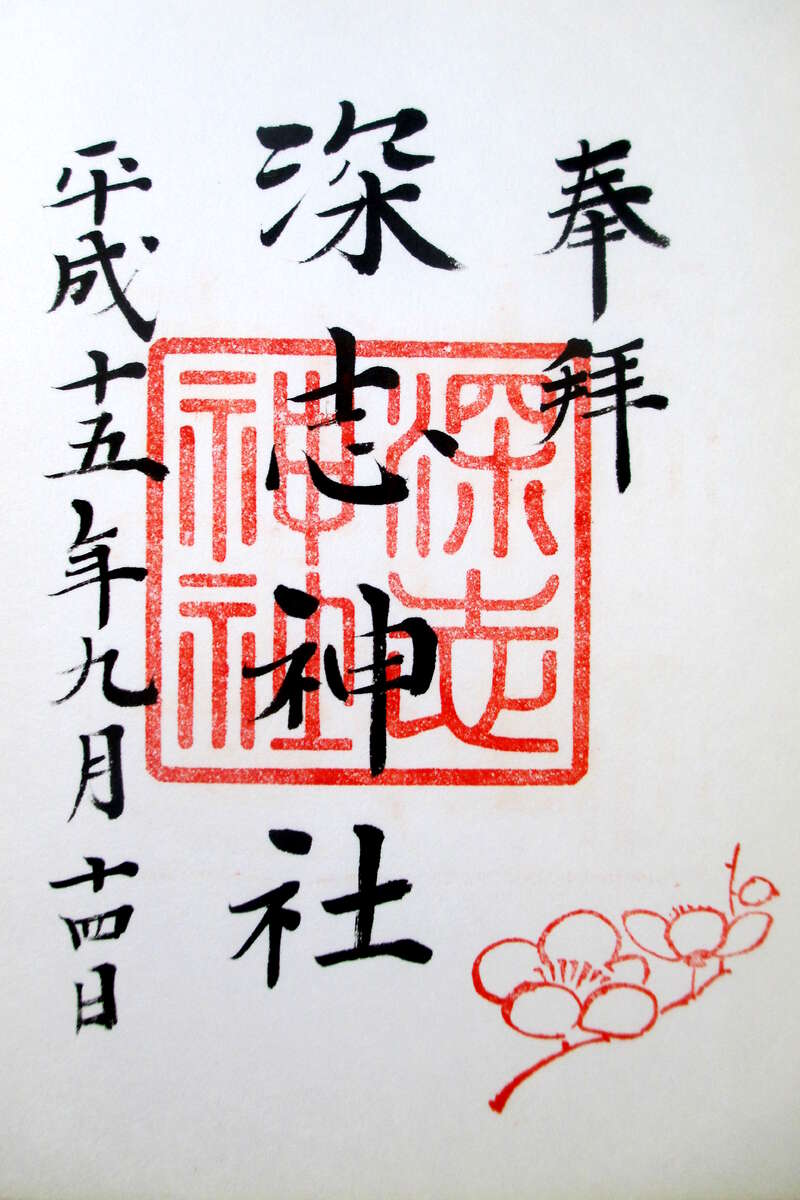 奉拝
深志神社
深志
神社
平成十五年九月十四日